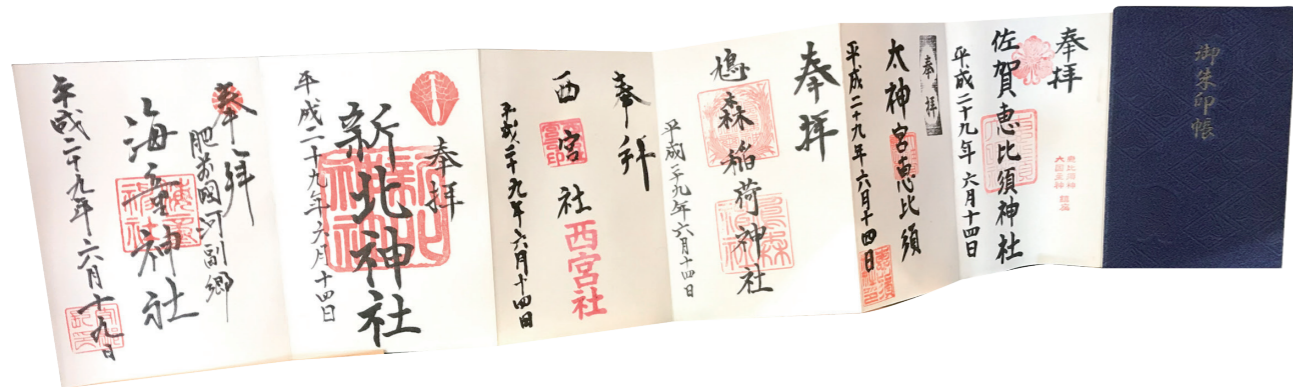 御朱印帳
奉拝
佐賀恵比須神社
平成二十九年六月十四日
奉拝
太神宮恵比須
平成二十九年六月十四日
奉拝
鳩森稲荷神社
平成二十九年六月十四日
奉拝
西宮社
西宮社
平成二十九年六月十四日
奉拝
新北神社
平成二十九年六月十四日
奉拝
肥前國河副郷
海童神社
平成二十九年六月十九日